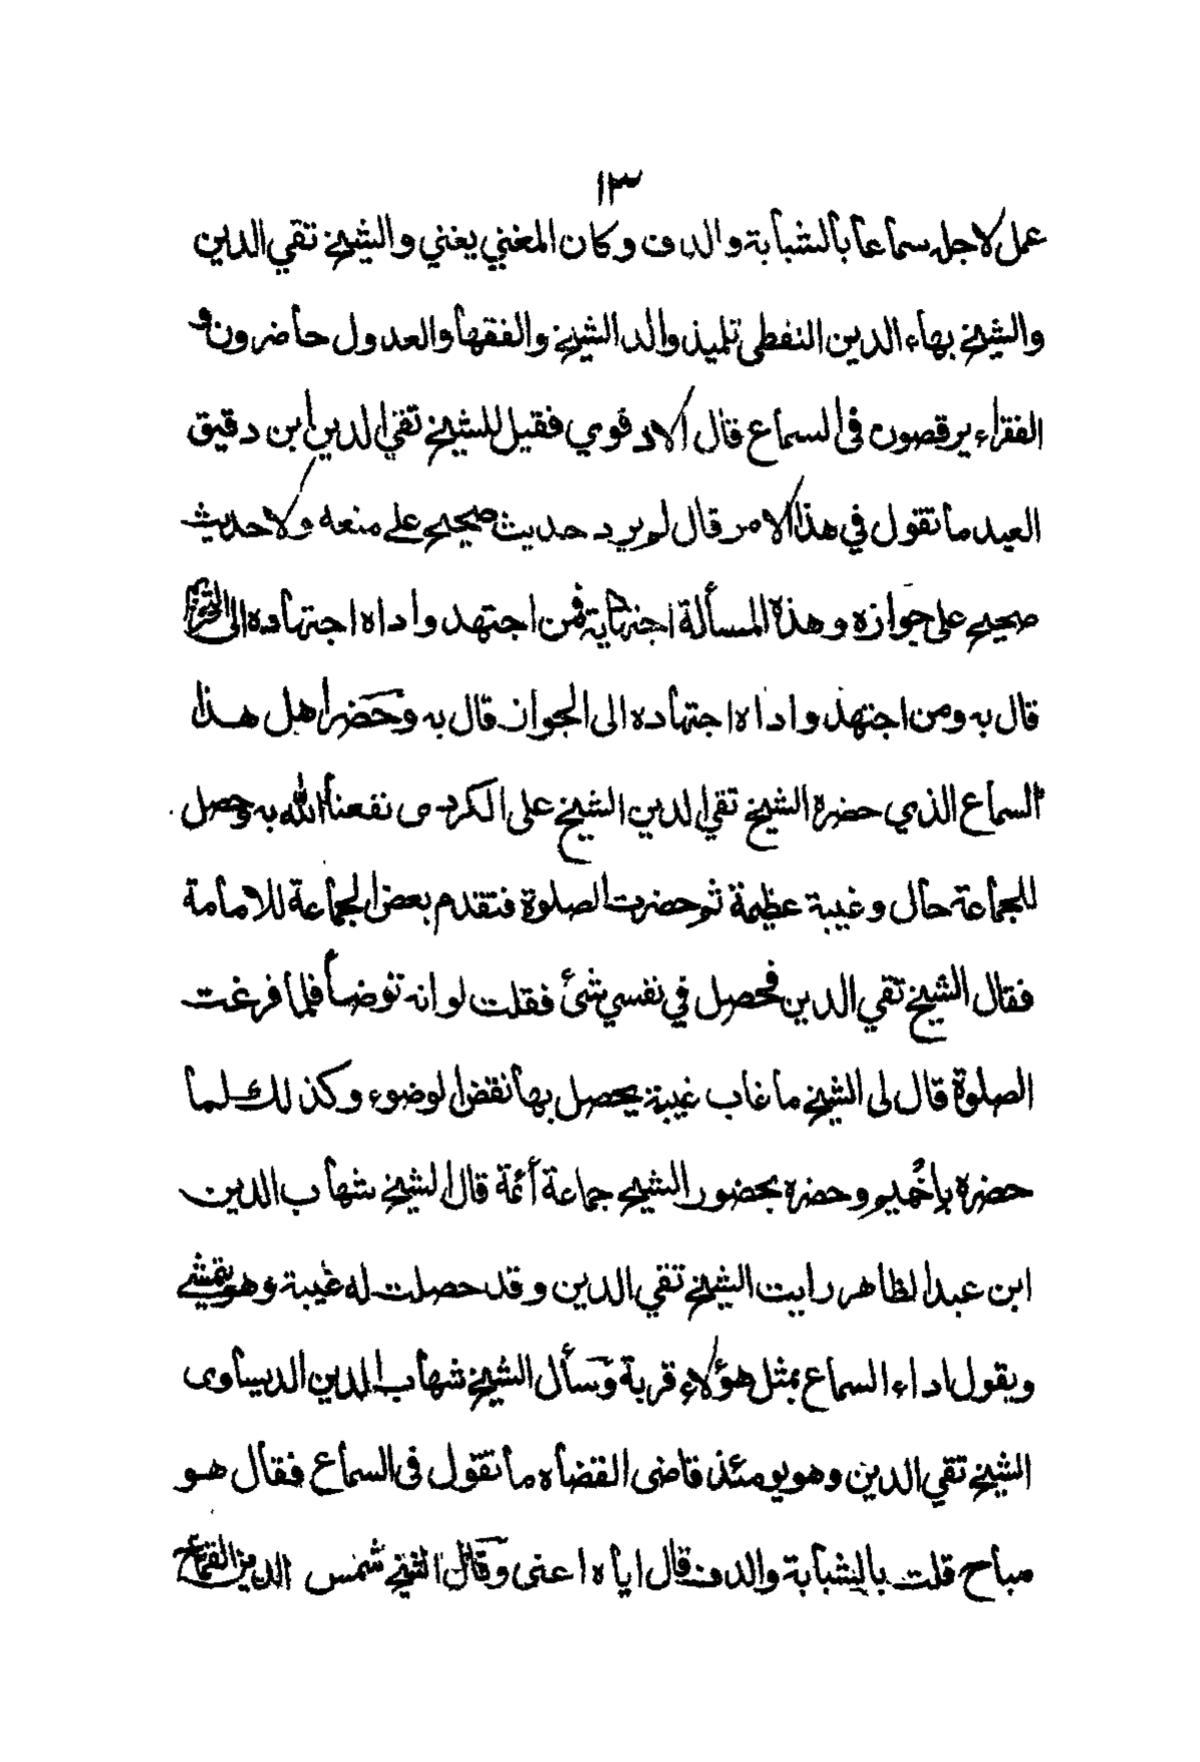 ١٣
عمل لاجله سماعا بالشبابة والدف وكان المغني يغني والشيخ تقي الدين
والشيخ بهاء الدين القفطي تلميذ والد الشيخ والفقها والعدول حاضرون و
الفقراء يرقصون في السماع قال الادفوي فقيل للشيخ تقي الدين ابن دقيق
العيد ما تقول في هذا الامر قال لم يرد حديث صحيح على منعه ولا حديث
صحيح على جوازه وهذة المسألة اجتهادية فمن اجتهد واداه اجتهاده الى التحريم
قال به ومن اجتهد واداه اجتهاده الى الجواز قال به وحضر اهل هذا
السماع الذي حضرة الشيخ تقي الدين الشيخ على الكردى نفعنا الله به وحصل
للجماعة حال وغيبة عظيمة ثم حضرت الصلوة فتقدم بعض الجماعة للامامة
فقال الشيخ تقي الدين فحصل في نفسي شئ فقلت لو انه توضأ فلما فرغت
الصلوة قال لى الشيخ ما غاب غيبة يحصل بها نقض الوضوء وكذلك لما
حضره باخميم وحضره بحضور الشيخ جماعة أئمة قال الشيخ شهاب الدين
ابن عبد الظاهر رايت الشيخ تقي الدين وقد حصلت له غيبة وهو يتمشى
ويقول اداء السماع بمثل هؤلاء قربة وسأل الشيخ شهاب الدين الدبساوى
الشيخ تقي الدين وهو يومئذ قاضى القضاه ما تقول فى السماع فقال هو
مباح قلت بالشبابة والدف قال اياه اعنى وقال الشيخ شمس الدين القماح